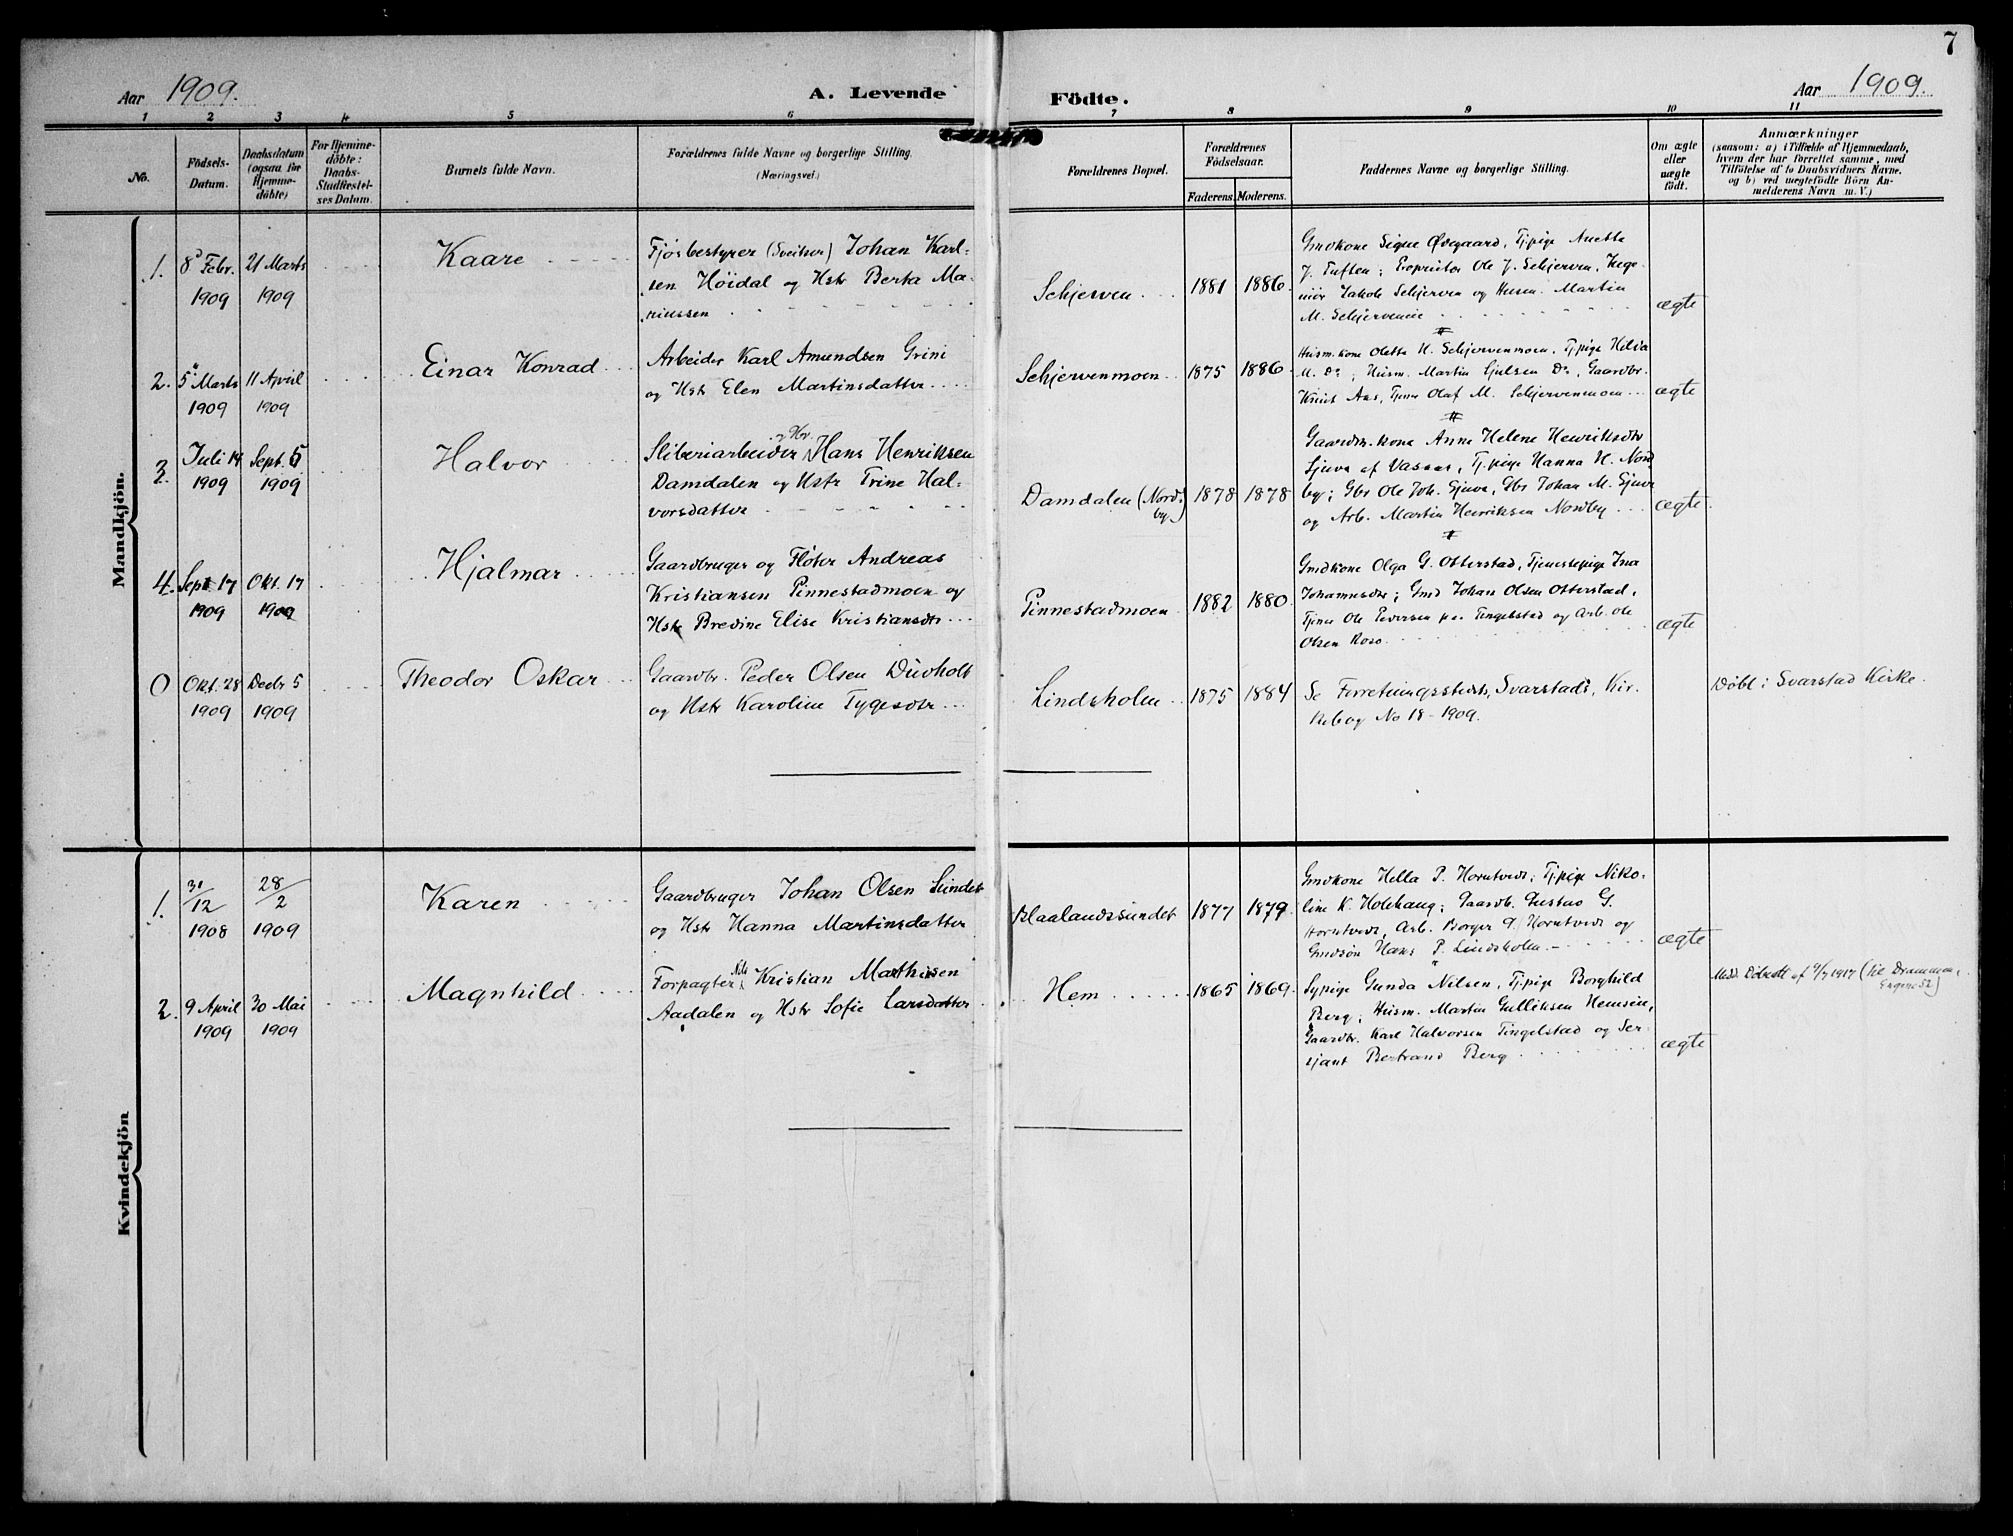 7
Aar 1909.
A. Levende Födte.
Aar 1909.
1 2 3 4 5 6 7 8 9 10 11
No.
Födsels-
Datum.
Daabsdatum
(ogsaa for
Hjemme-
döbte)
For Hjemme-
döbte:
Daabs-
Stadfæstel-
ses Datum.
Barnets fulde Navn.
Forældrenes fulde Navne og borgerlige Stilling.
(Næringsvei.)
Forældrenes Bopæl.
Forældrenes
Födselsaar.
Faderens. Moderens.
Faddernes Navne og borgerlige Stilling.
Om ægte
eller
uægte
födt.
Anmærkninger
(saasom: a) i Tilfælde af Hjemmedaab,
hvem der har forrettet samme, med
Tilföielse af to Daabsvidners Navne,
og b) ved uægtefödte Börn An-
melderens Navn m. V.)
Mandkjön.
1. 8 Febr.
1909
21 Marts
1909
Kaare
Fjösbestyrer (Sveitser) Johan Karl-
sen Höidal og Hstr Berta Ma-
riussen
Schjerven
1881 1886
Gmdkone Signe Övegaard, Tj.pige Anette
J. Tuften; Proprietær Ole J. Schjerven, Inge-
niör Jakob Schjerven og Husm. Martin
M. Schjervenmoen
ægte
2. 5 Marts
1909
11 April
1909
Einar Konrad
Arbeider Karl Amundsen Grini
og Hstr Elen Martinsdatter
Schjervenmoen
1875 1886
Husm.kone Oletta H. Schjervenmoen, Tj.pige Helia
M. Do; Husm. Martin Gulsen Do, Gaardbr.
Knut Aas, Tjener Olaf M. Schjervenmoen
ægte
3. Juli 14
1909
Sept. 5
1909
Halvor
Sliberiarbeider og Hv. Hans Henriksen
Damdalen og Hstr Trine Hal-
vorsdatter
Damdalen (Nord-
by)
1878 1878
Gaardm.kone Anne Helene Henriksdtr
Gjuve af Vasaas, Tj.pige Hanna H. Nord
by; Gbr Ole Joh. Gjuve, Gbr Johan M. Gjuve
og Arb. Martin Henriksen Nordby
ægte
4. Sept 17
1909
Okt. 17
1909
Hjalmar
Gaardbruger og Flöter Andreas
Kristiansen Pinnestadmoen og
Hstr Bredine Elise Kristiansdtr
Pinnestadmoen
1882 1880
Gmdkone Olga G. Otterstad, Tjenestepige Ina
Johannesdtr; Gmd Johan Olsen Otterstad,
Tjener Ole Pedersen paa Tingelstad og Arb. Ole
Olsen Roso
ægte
0 Okt. 28
1909
Decbr 5
1909
Theodor Oskar
Gaardbr. Peder Olsen Duvholt
og Hstr Karoline Tygesdtr
Lindsholm
1875 1884
Se Forretningsstedets, Svarstads, Kir-
kebog No 18-1909.
Döbt i Svarstad Kirke.
Kvindekjön
1. 31/12
1908
28/2
1909
Karen
Gaardbruger Johan Olsen Sundet
og Hstr Hanna Martinsdatter
Blaalandssundet
1877 1879
Gmdkone Hella P. Horntvedt; Tj.pige Niko-
line K. Holehaug; Gaardb. Gustav G.
Horntvedt, Arb. Borger G. Horntvedt og
Gmdsön Hans P. Lindsholm
ægte
2. 9 April
1909
30 Mai
1909
Magnhild
Forpagter Nils Kristian Mathisen
Aadalen og Hstr Sofie Larsdatter
Hem
1865 1869
Sypige Gunda Nilsen, Tj.pige Borghild
Berg; Husm. Martin Gulliksen Hemseie,
Gaardbr. Karl Halvorsen Tingelstad og Ser-
sjant Bertrand Berg
ægte
Medd. Dåbsatt af 9/7 1917 (til Drammen,
Engene 52)